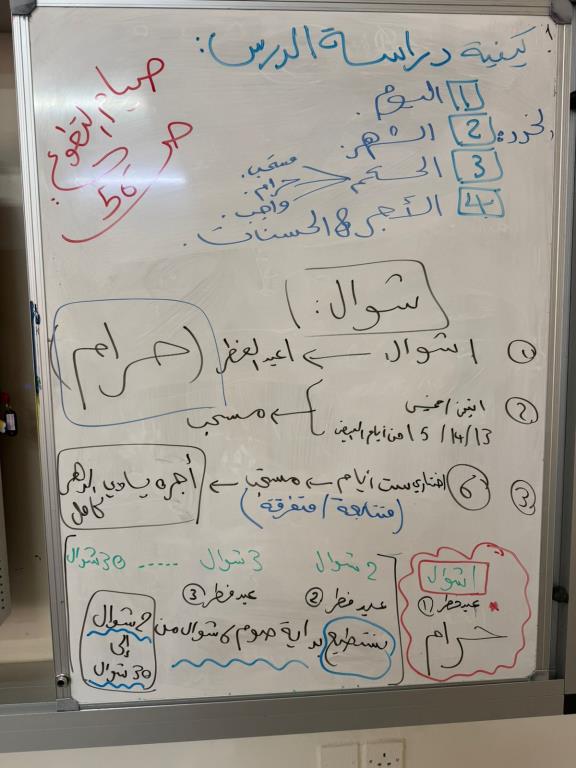 كيفية دراسة الدرس:
صيام التطوع
ص 56
1 اليوم.
2 الشهر.
3 الحكم
مستحب.
حرام.
واجب.
4 الأجر & الحسنات.
شوال:
① 1 شوال ← عيد الفطر (حرام)
② اثنين / خميس
13/14/15 من أيام البيض
← مستحب
③ 6 اختاري ست أيام ← مستحب ← أجره يساوي الدهر كامل
(متتابعة / متفرقة)
1 شوال
* عيد فطر ①
حرام
2 شوال 3 شوال ..... 30 شوال
عيد فطر ② عيد فطر ③
نستطيع بداية صوم 6 شوال من 2 شوال
إلى
30 شوال